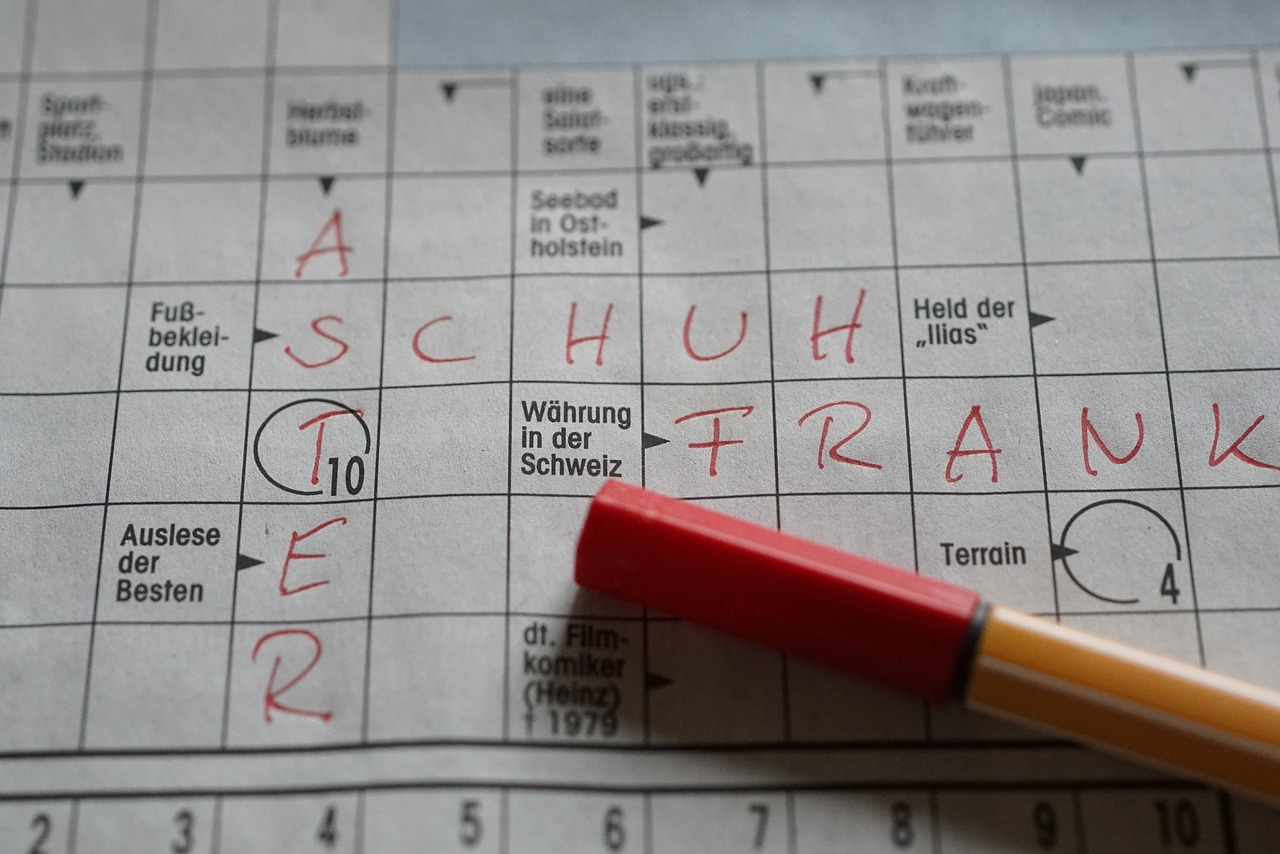 Sport-
platz,
Stadion
Herbst-
blume
eine
Salat-
sorte
ugs.:
erst-
klassig,
großartig
Kraft-
wagen-
führer
japan.
Comic
A
Seebad
in Ost-
holstein
Fuß-
beklei-
dung
S C H U H
Held der
„Ilias“
T
10
Währung
in der
Schweiz
F R A N K
Auslese
der
Besten
E
Terrain
4
R
dt. Film-
komiker
(Heinz)
† 1979
2 3 4 5 6 7 8 9 10